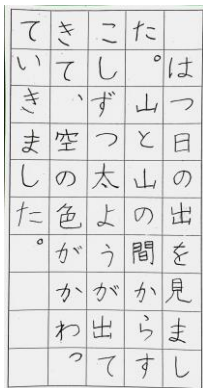 はつ日の出を見まし
た。山と山の間からす
こしずつ太ようが出て
きて、空の色がかわっ
ていきました。